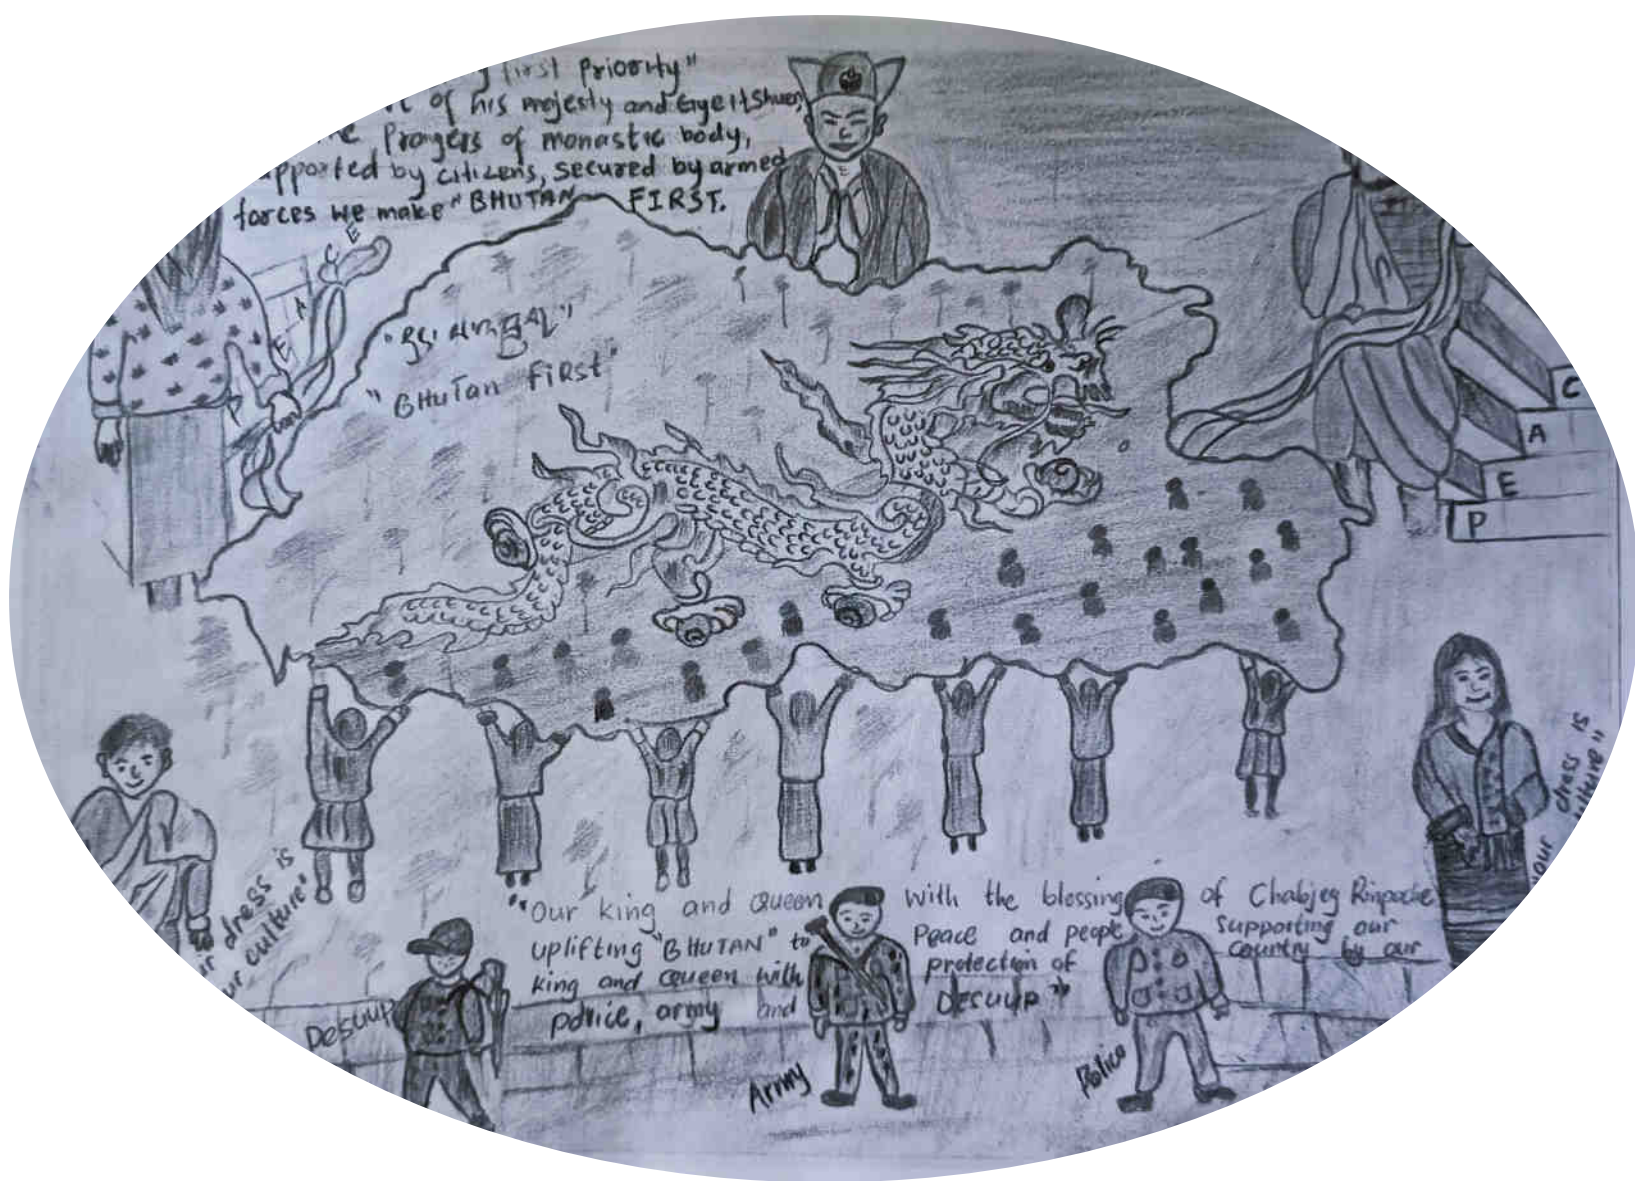 first Priority"
of his mejesty and GyeltShuen,
Prayers of monastic body,
supported by citizens, secured by armed
forces we make "BHUTAN FIRST.
P E A C E
"BHuTan FiRst"
C
A
E
P
dress is
our culture"
"our dress is
culture"
"Our king and Queen with the blessing of Chabjeg Rinpoche
uplifting "BHUTAN" to Peace and people supporting our
king and Queen with protection of country by our
police, army and Desuup"
Desuup
Army
Police